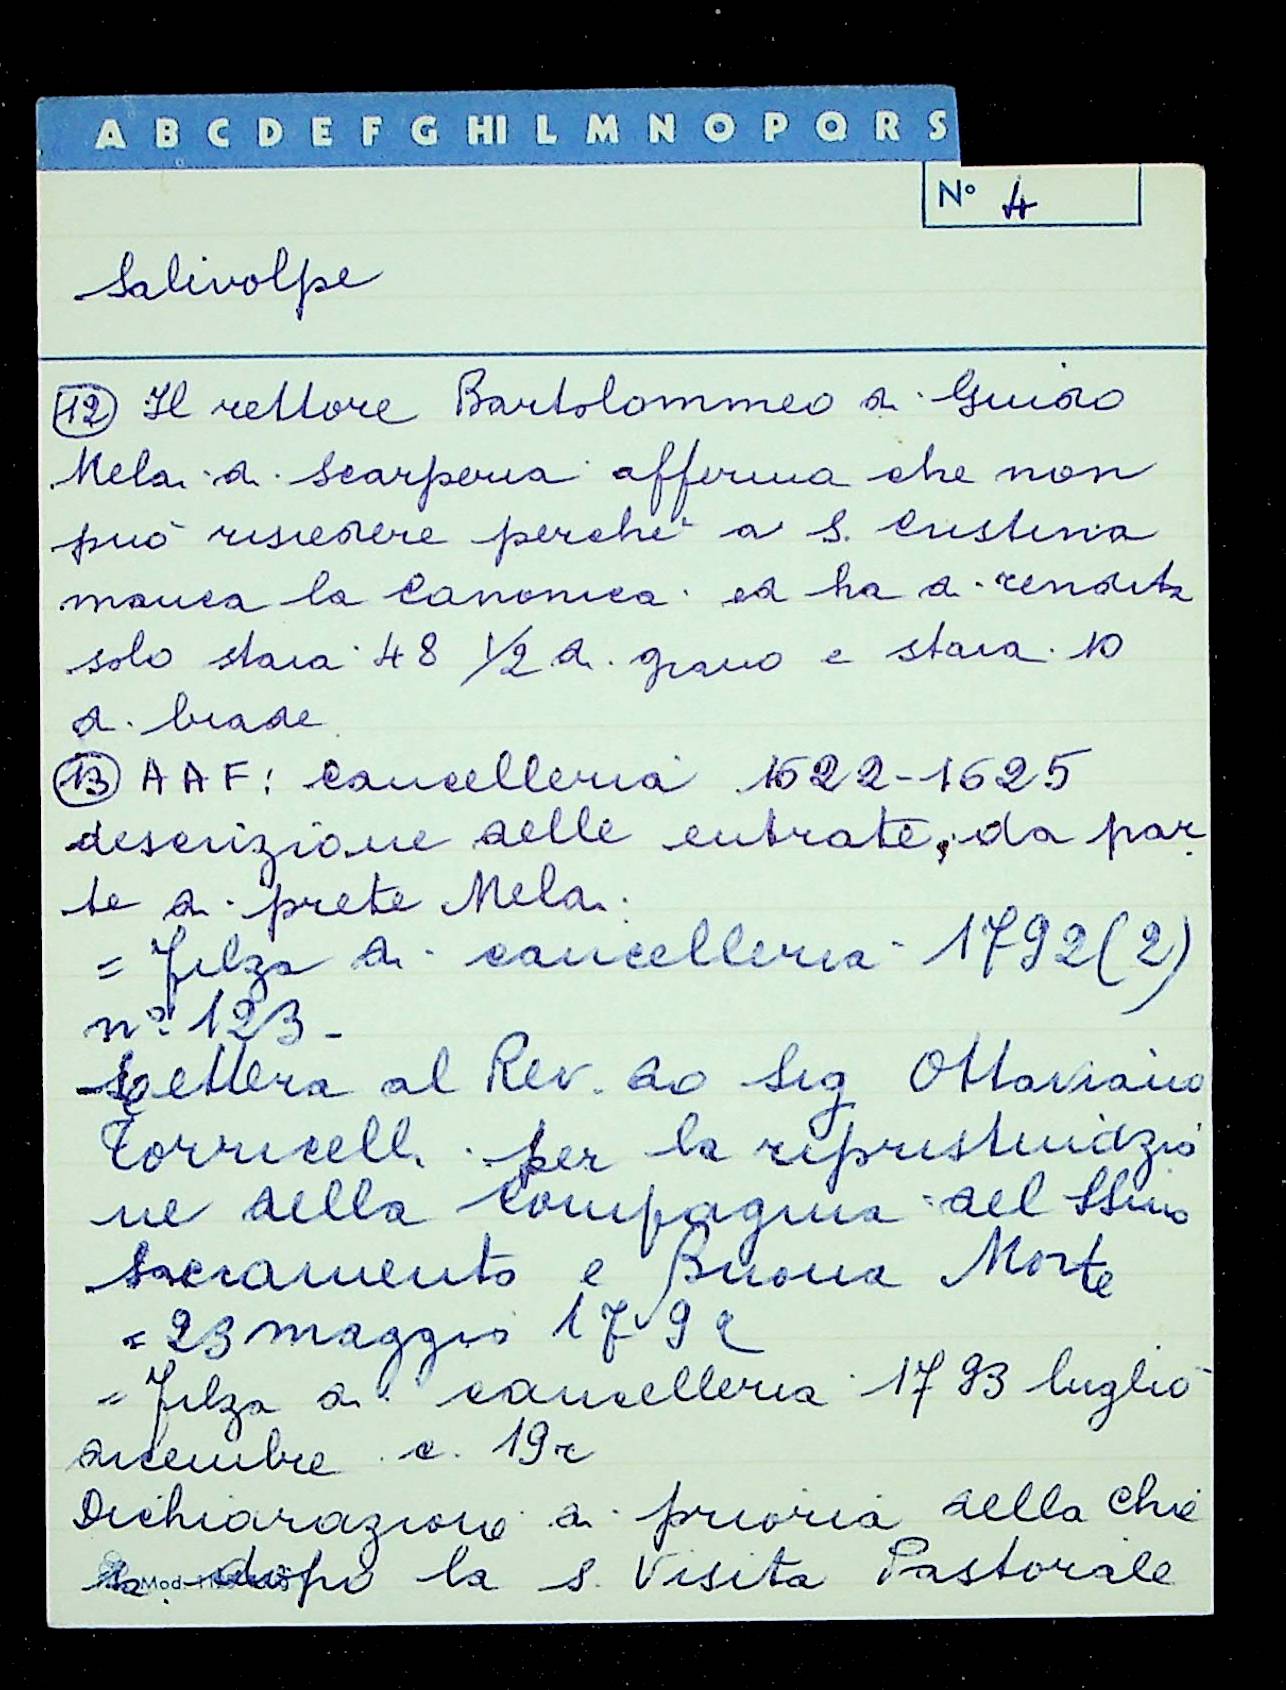 A B C D E F G HI L M N O P Q R S
N° 4
Salivolpe
12 Il rettore Bartolommeo di Guido
Melai di Scarperia afferma che non
può risiedere perché a S. Cristina
manca la Canonica ed ha di rendita
solo staia 48 1/2 di grano e staia 10
di biade
13 AAF: Cancelleria 1622-1625
descrizione delle entrate, da par
te di prete Melai.
= Filza di cancelleria 1792(2)
n° 123-
-Lettera al Rev.do Sig Ottaviano
Torricelli per la ripristinazio
ne della Compagnia del SSmo
Sacramento e Buona Morte
= 23 maggio 1792
= Filza di cancelleria 1793 luglio
dicembre c. 19r
Dichiarazione di prioria della chie
sa dopo la S. Visita Pastorale
Mod.